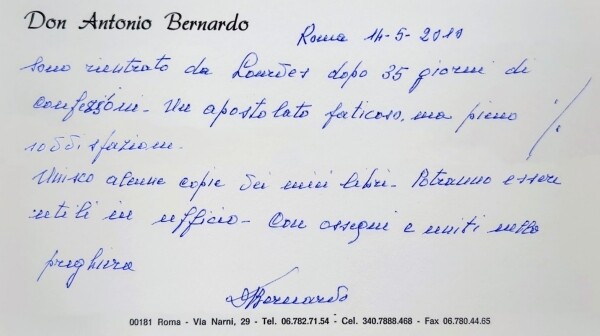 Don Antonio Bernardo
Roma 14-5-2010
sono rientrato da Lourdes dopo 35 giorni di
confessioni - Un apostolato faticoso, ma pieno
soddisfazioni.
Unisco alcune copie dei miei libri - Potranno essere
utili in ufficio - Con ossequi e uniti nella
preghiera
D. Bernardo
00181 Roma - Via Narni, 29 - Tel. 06.782.71.54 - Cel. 340.7888.468 - Fax 06.780.44.65